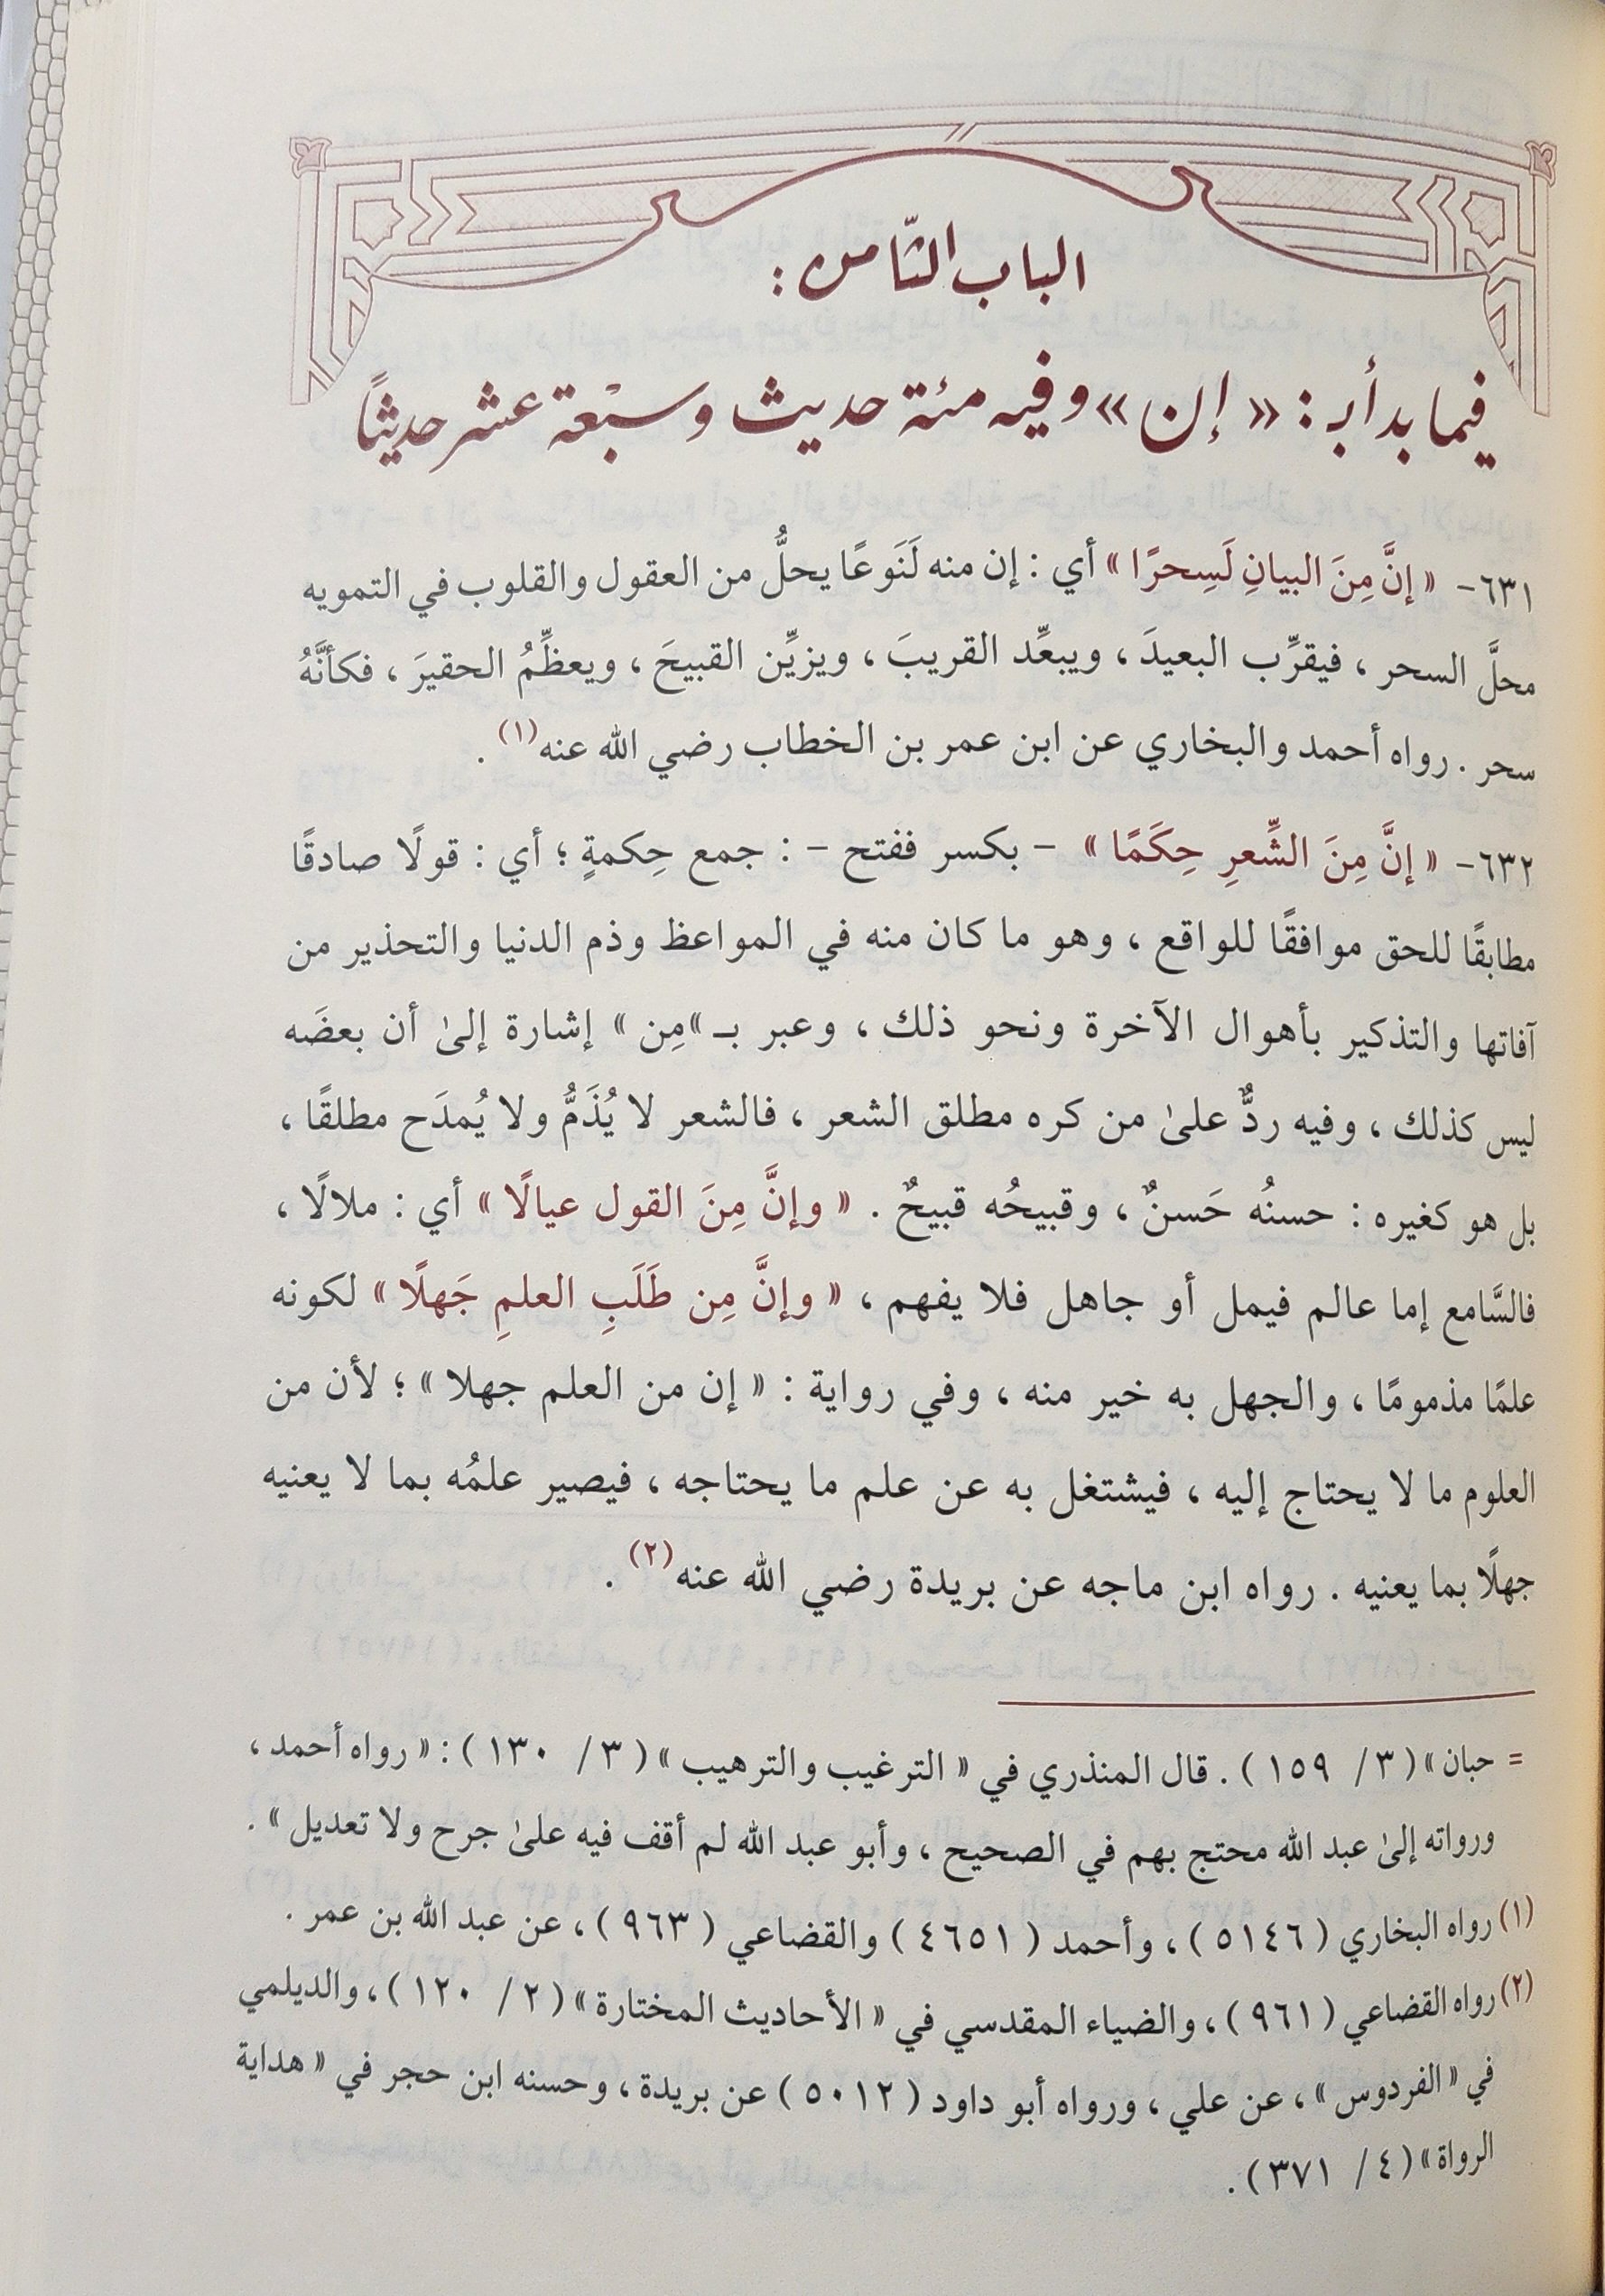 الباب الثّامن :
فيما بدأ بـ : « إن » وفيه مئة حديث وسبْعة عشر حديثًا
٦٣١- « إنَّ مِنَ البيانِ لَسِحرًا » أي : إن منه لَنَوعًا يحلُّ من العقول والقلوب في التمويه
محلَّ السحر ، فيقرِّب البعيدَ ، ويبعِّد القريبَ ، ويزيِّن القبيحَ ، ويعظِّمُ الحقيرَ ، فكأنَّهُ
سحر . رواه أحمد والبخاري عن ابن عمر بن الخطاب رضي الله عنه (١) .
٦٣٢- « إنَّ مِنَ الشِّعرِ حِكَمًا » - بكسر ففتح - : جمع حِكمةٍ ؛ أي : قولًا صادقًا
مطابقًا للحق موافقًا للواقع ، وهو ما كان منه في المواعظ وذم الدنيا والتحذير من
آفاتها والتذكير بأهوال الآخرة ونحو ذلك ، وعبر بـ »مِن » إشارة إلىٰ أن بعضَه
ليس كذلك ، وفيه ردٌّ علىٰ من كره مطلق الشعر ، فالشعر لا يُذَمُّ ولا يُمدَح مطلقًا ،
بل هو كغيره : حسنُه حَسنٌ ، وقبيحُه قبيحٌ . « وإنَّ مِنَ القول عيالًا » أي : ملالًا ،
فالسَّامع إما عالم فيمل أو جاهل فلا يفهم ، « وإنَّ مِن طَلَبِ العلمِ جَهلًا » لكونه
علمًا مذمومًا ، والجهل به خير منه ، وفي رواية : « إن من العلم جهلا » ؛ لأن من
العلوم ما لا يحتاج إليه ، فيشتغل به عن علم ما يحتاجه ، فيصير علمُه بما لا يعنيه
جهلًا بما يعنيه . رواه ابن ماجه عن بريدة رضي الله عنه (٢) .
= حبان » ( ٣ / ١٥٩ ) . قال المنذري في « الترغيب والترهيب » ( ٣ / ١٣٠ ) : « رواه أحمد ،
ورواته إلىٰ عبد الله محتج بهم في الصحيح ، وأبو عبد الله لم أقف فيه علىٰ جرح ولا تعديل » .
(١) رواه البخاري ( ٥١٤٦ ) ، وأحمد ( ٤٦٥١ ) والقضاعي ( ٩٦٣ ) ، عن عبد الله بن عمر .
(٢) رواه القضاعي ( ٩٦١ ) ، والضياء المقدسي في « الأحاديث المختارة » ( ٢ / ١٢٠ ) ، والديلمي
في « الفردوس » ، عن علي ، ورواه أبو داود ( ٥٠١٢ ) عن بريدة ، وحسنه ابن حجر في « هداية
الرواة » ( ٤ / ٣٧١ ) .